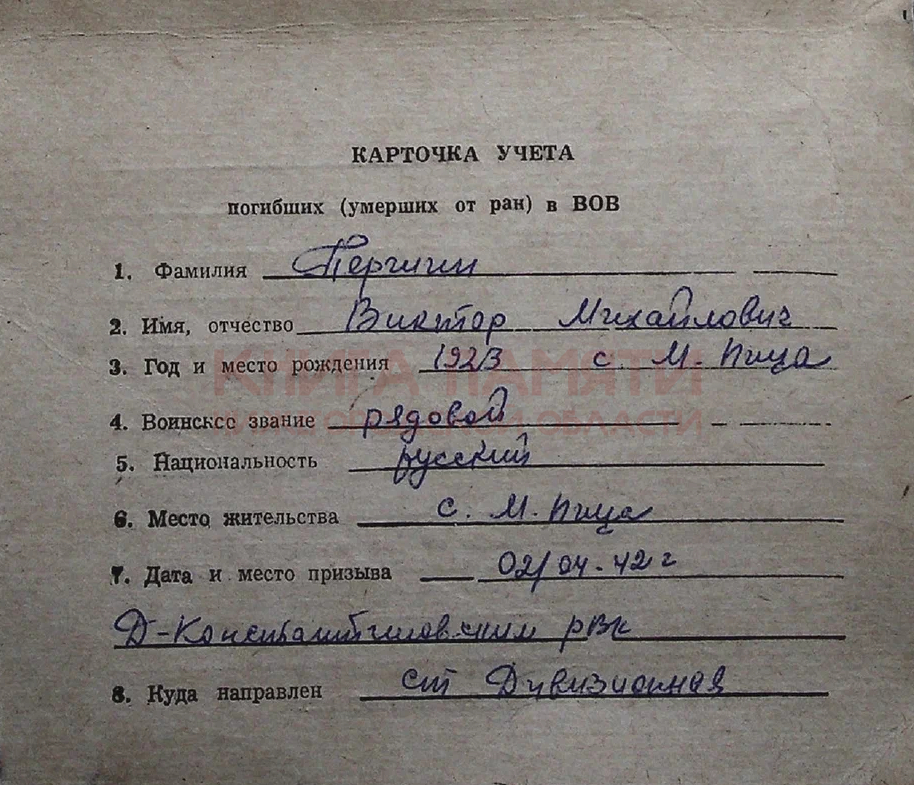 КАРТОЧКА УЧЕТА
погибших (умерших от ран) в ВОВ
1. Фамилия Пергигин
2. Имя, отчество Виктор Михайлович
3. Год и место рождения 1923 с. М. Пица
КНИГА ПАМЯТИ
4. Воинское звание рядовой
ОБЛАСТИ
5. Национальность русский
6. Место жительства с. М. Пица
7. Дата и место призыва 02/04-42 г
Д-Константиновским рвк
8. Куда направлен ст Дивизионная